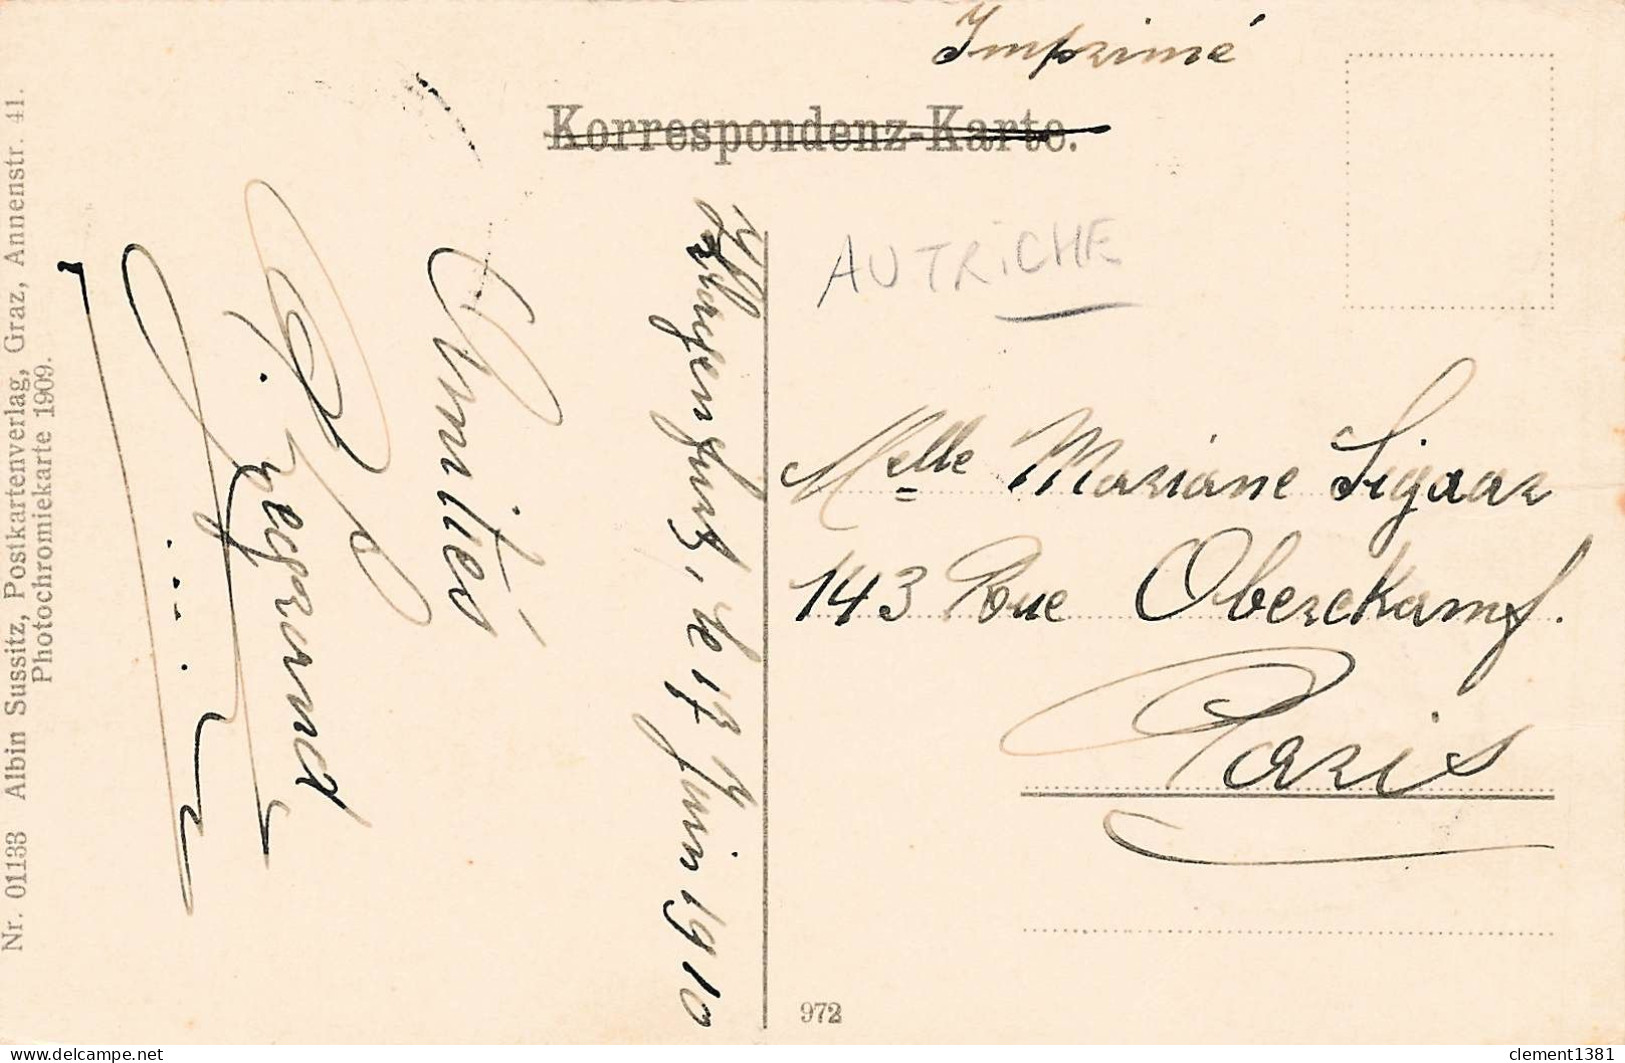 Imprimé
Korrespondenz-Karte.
AUTRICHE
Klagenfurt, le 17 Juin 1910
Amitiés
Legrand
Melle Mariane Sigaar
143 Rue Oberckampf.
Paris
Nr. 01133 Albin Sussitz, Postkartenverlag, Graz, Annenstr. 41.
Photochromiekarte 1909.
972
delcampe.net
clement1381